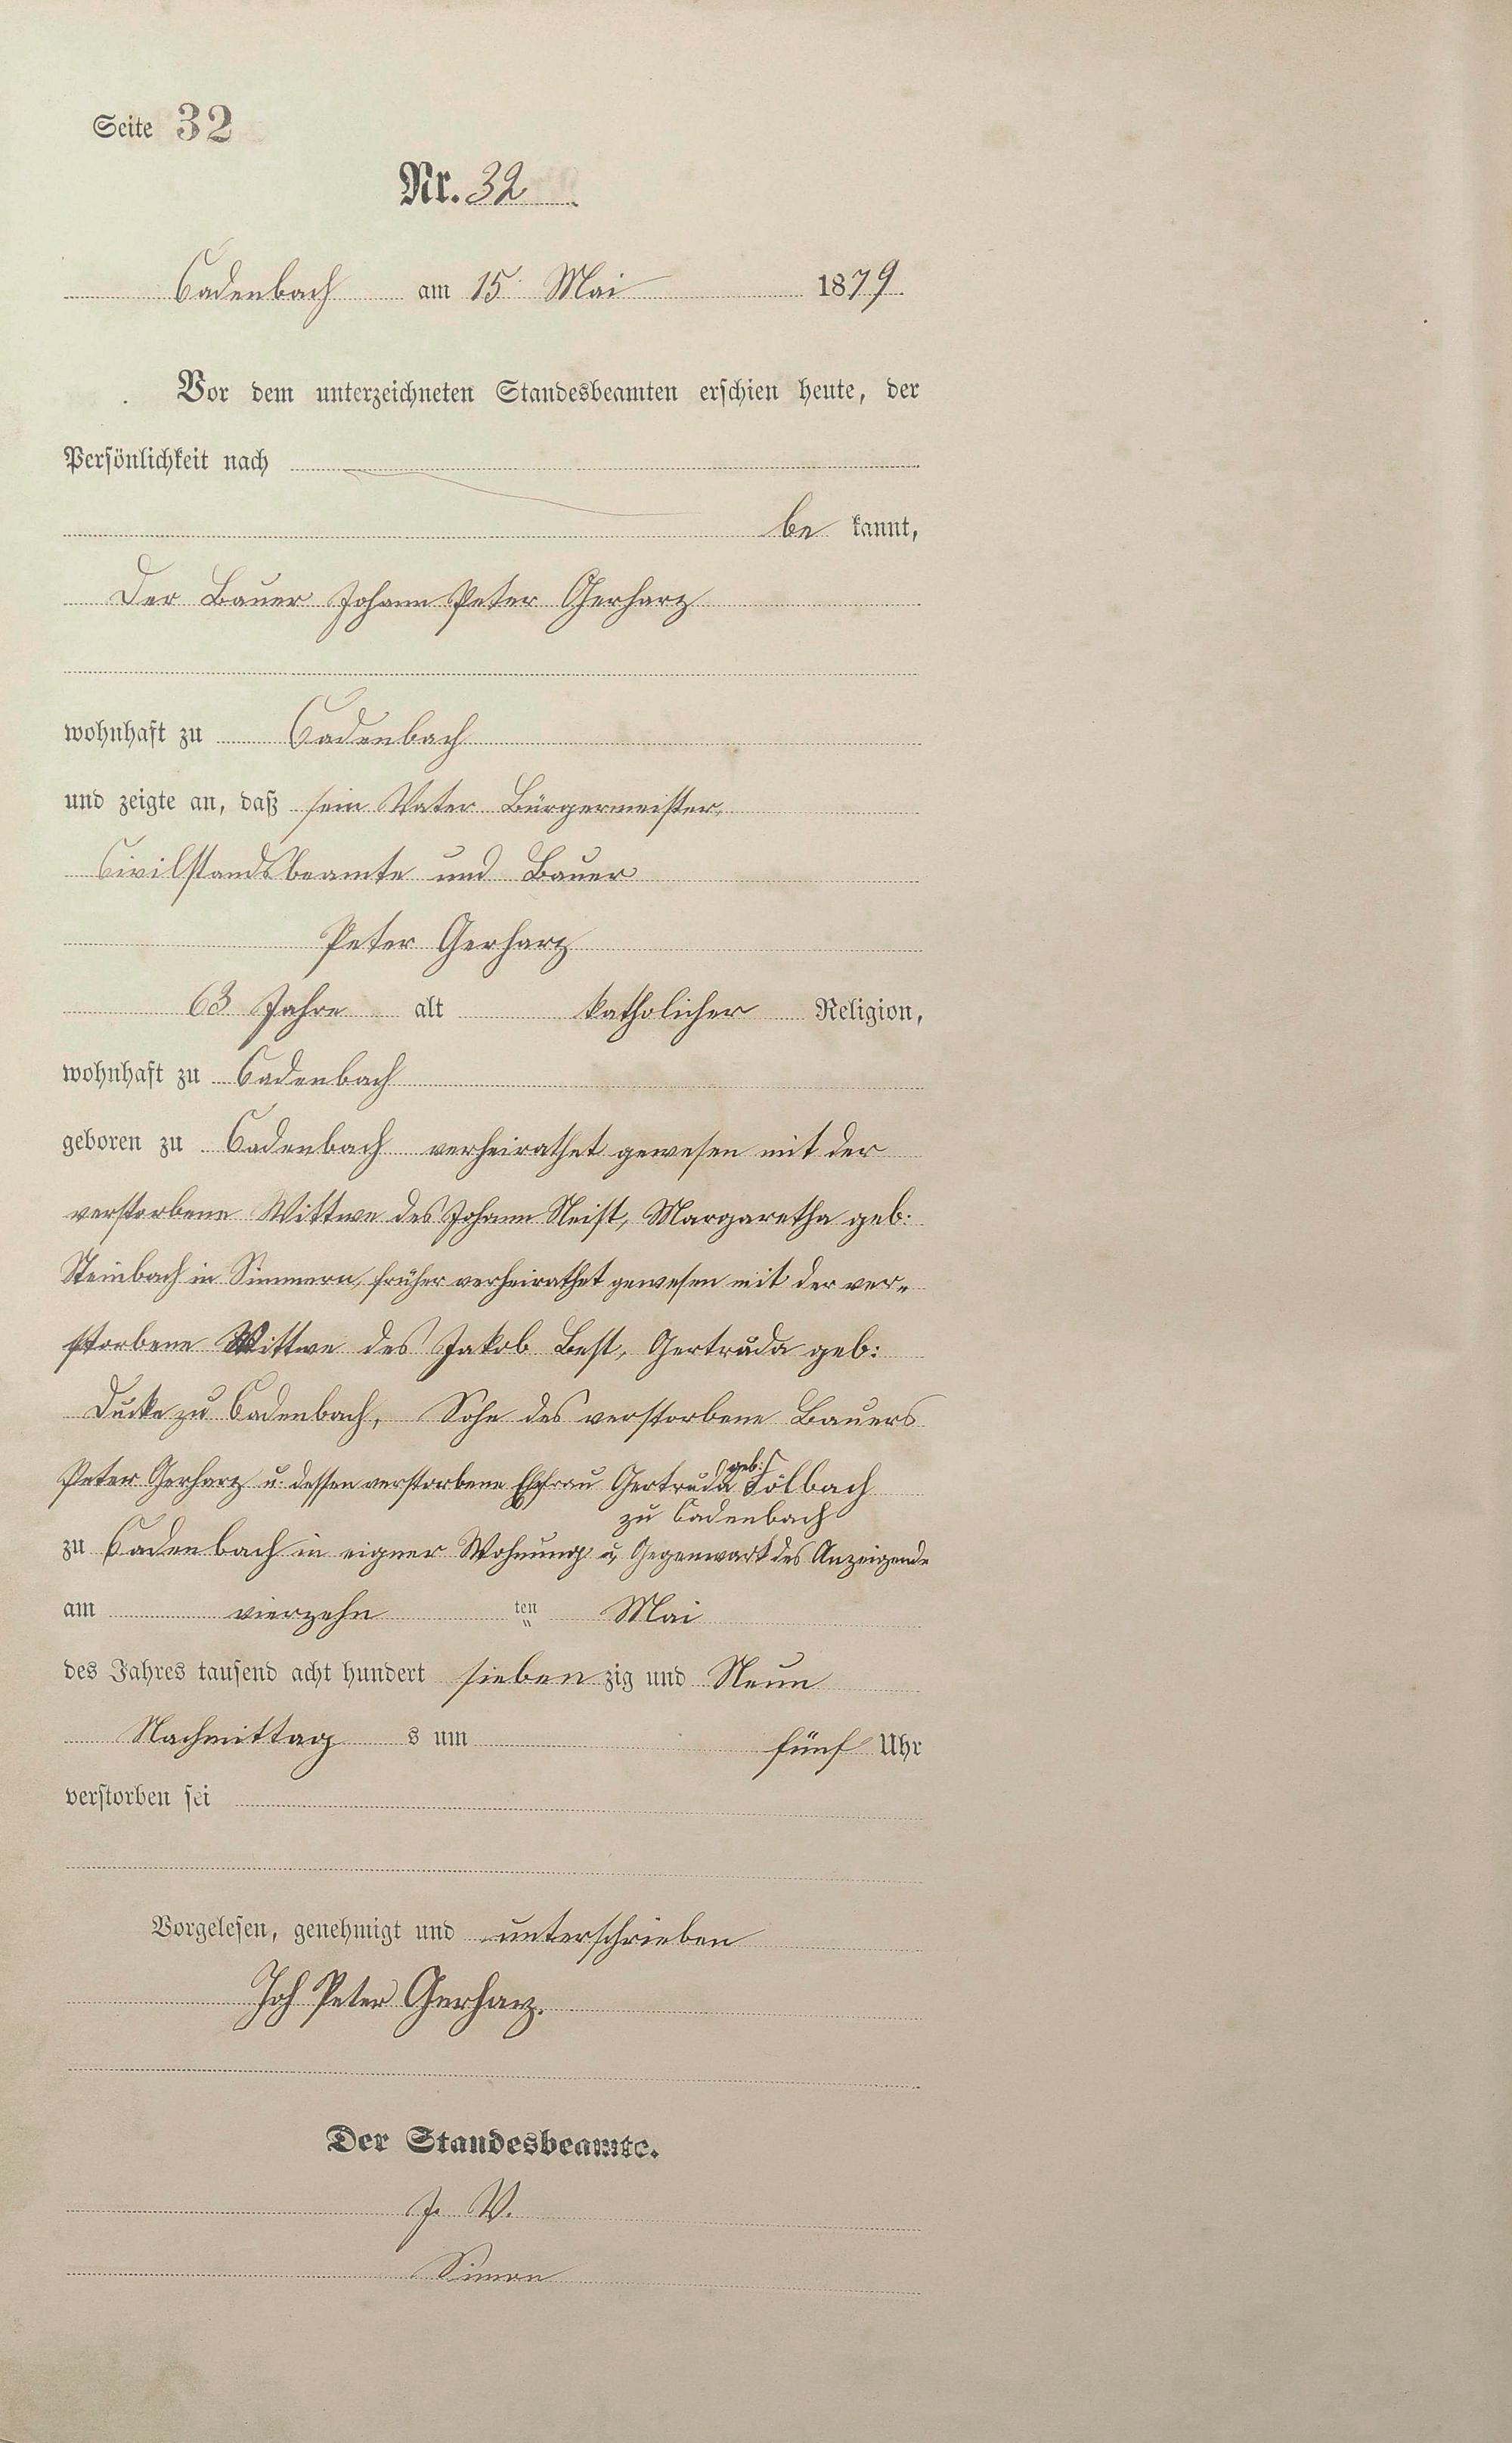 Seite 32
Nr. 32
Cadenbach am 15 Mai 1879
Vor dem unterzeichneten Standesbeamten erschien heute, der
Persönlichkeit nach
be kannt,
Der Bauer Johann Peter Gerharz
wohnhaft zu Cadenbach
und zeigte an, daß sein Vater Bürgermeister,
Civilstandsbeamte und Bauer
Peter Gerharz
63 Jahre alt katholicher Religion,
wohnhaft zu Cadenbach
geboren zu Cadenbach verheirathet gewesen mit der
verstorbene Wittwe des Johann Neist, Margaretha geb:
Steinbach in Simmern, früher verheirathet gewesen mit der ver-
storbene Wittwe des Jakob Best, Gertruda geb:
Ducke zu Cadenbach, Sohn des verstorbene Bauers
Peter Gerharz u. dessen verstorbene Ehfrau Gertruda geb: Fölbach
zu Cadenbach
zu Cadenbach in eigner Wohnung u. Gegenwart des Anzeigende
am vierzehn ten Mai
des Jahres tausend acht hundert sieben zig und Neun
Nachmittag s um fünf Uhr
verstorben sei
Vorgelesen, genehmigt und unterschrieben
Joh Peter Gerharz.
Der Standesbeamte.
J. V.
Simon